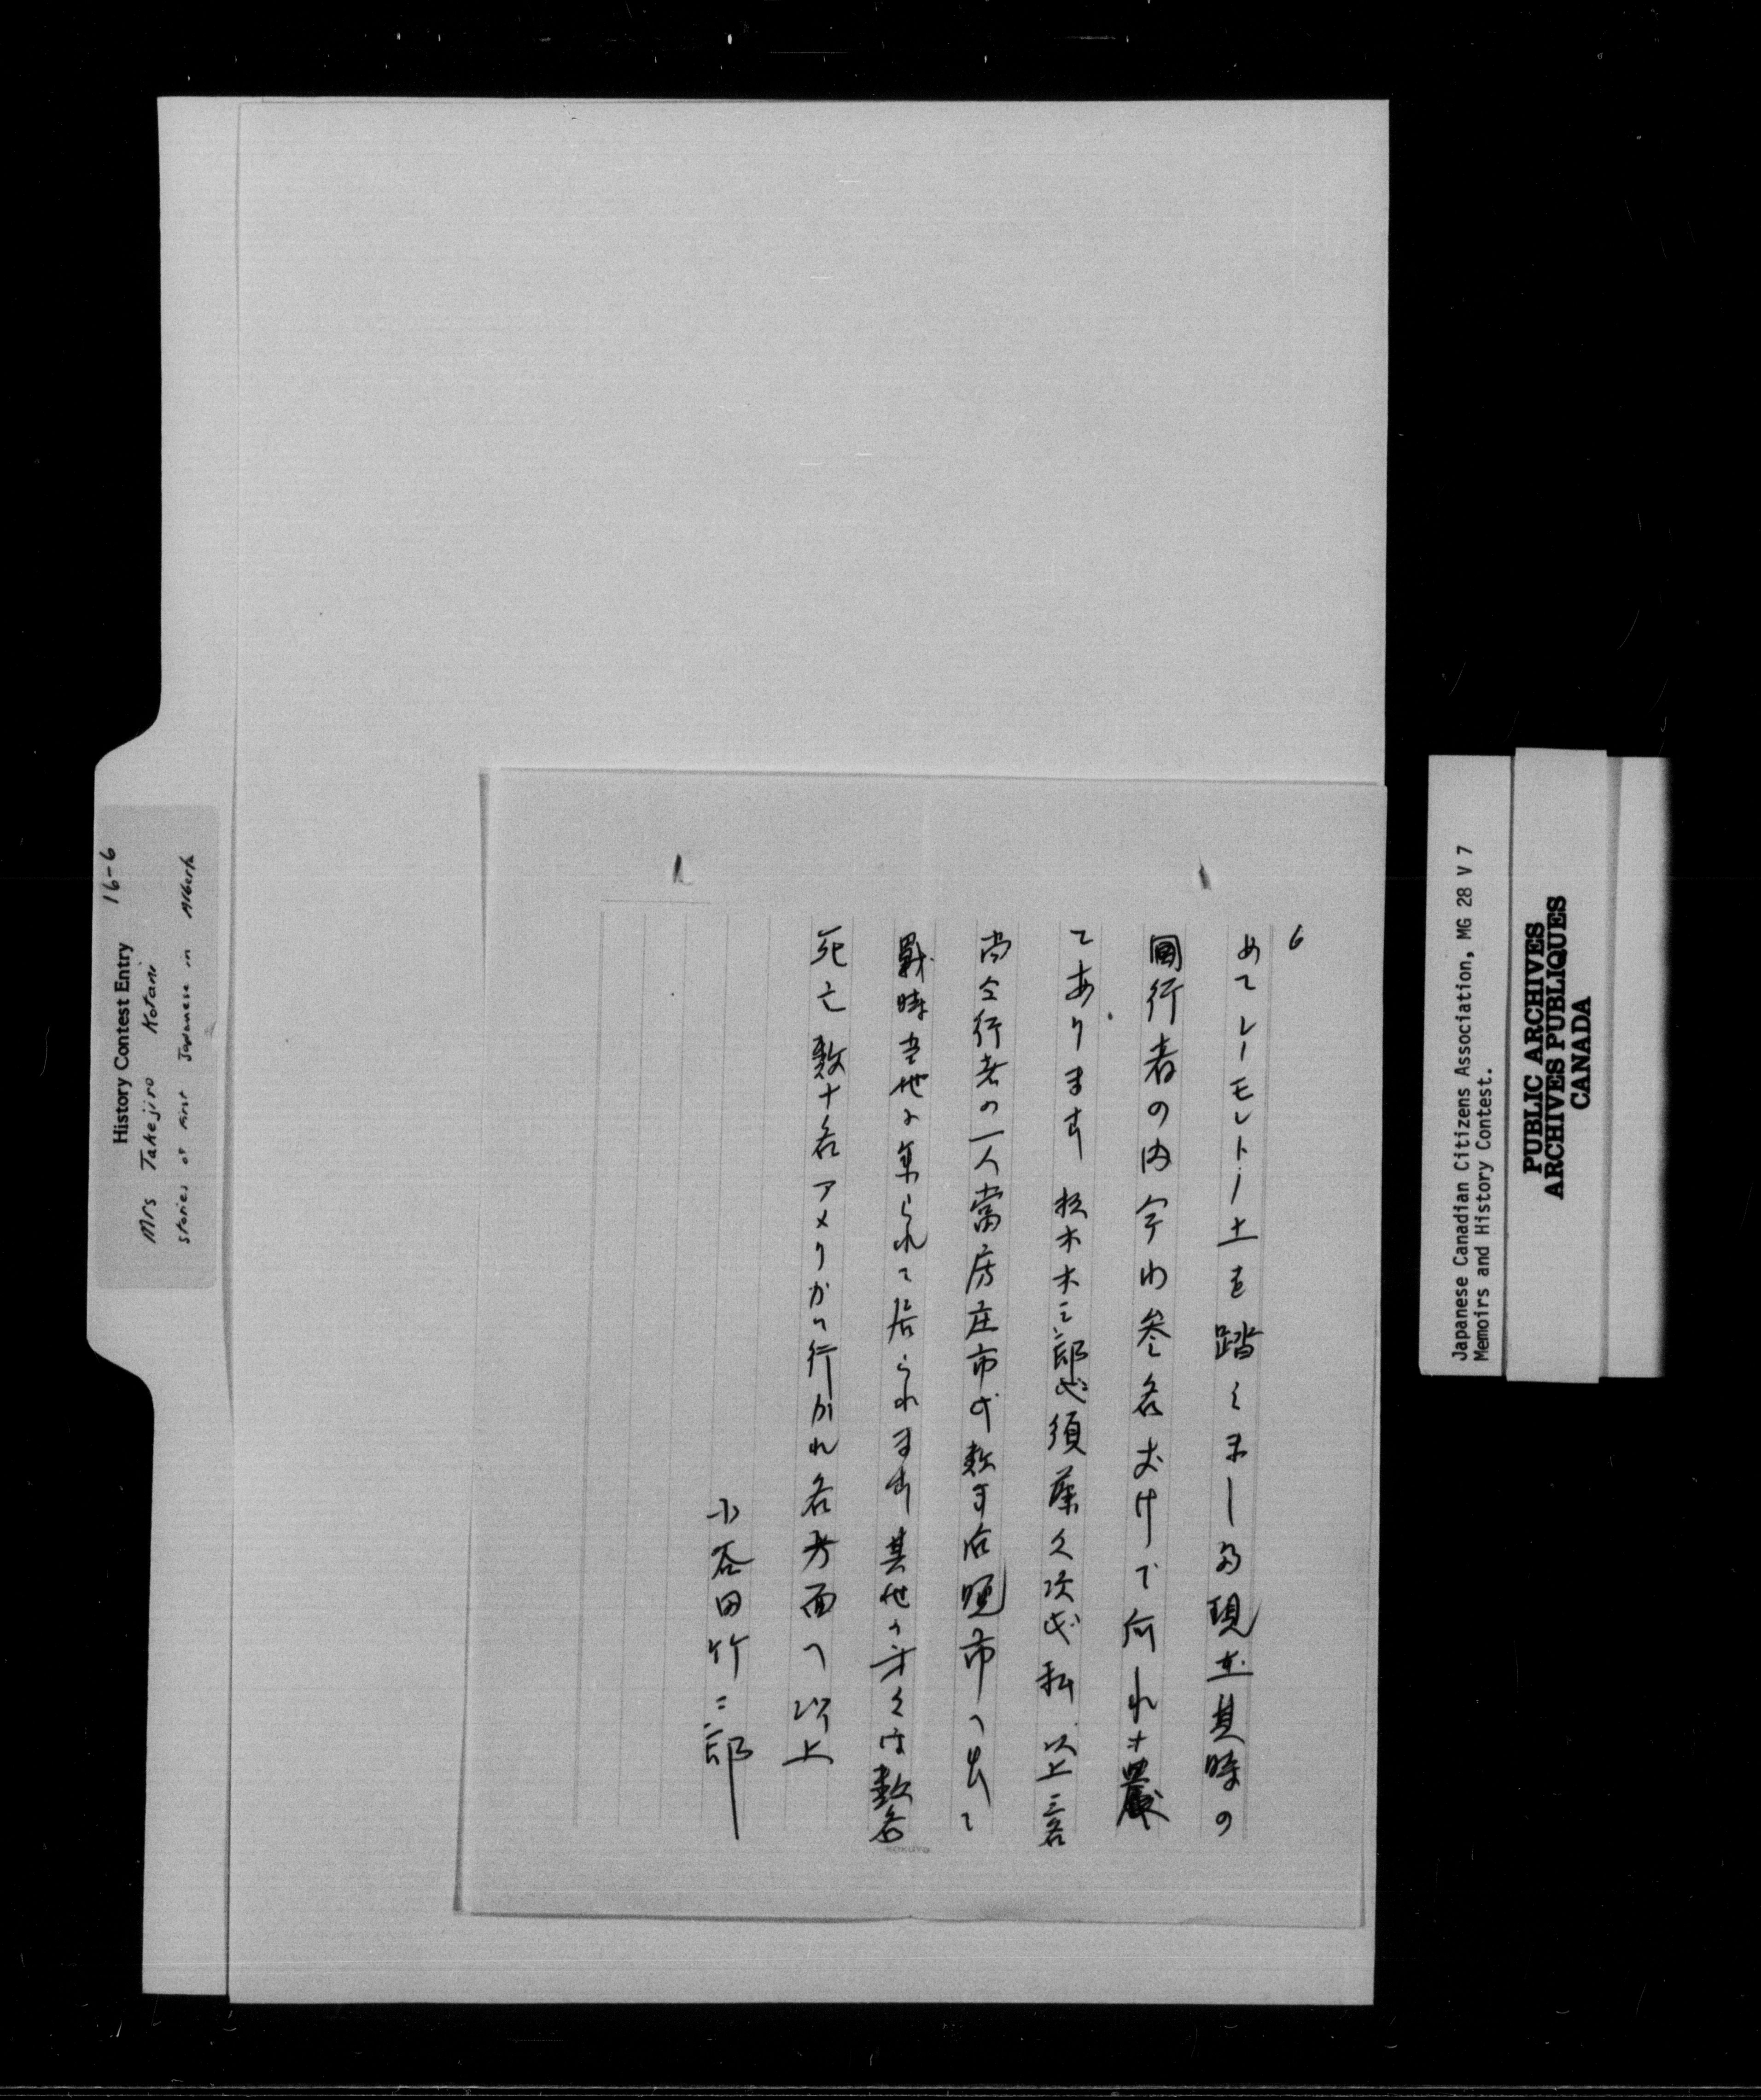 6
めてレーモンドー土を踏みました現在其時の
同行者の内今わ参名だけで何れも農
てあります 松本本三郎氏須藤久次氏私以上三名
尚今行者の一人當房庄市氏数年后晩市へ出て
戦時当地に集られて居られます其他の方々は数名
死亡数十名アメリカへ行かれ各方面へ以上
小谷田竹二郎
KOKUYO
History Contest Entry 16-6
Mrs Takejiro Kotani
stories of first Japanese in Alberta
Japanese Canadian Citizens Association, MG 28 V 7
Memoirs and History Contest.
PUBLIC ARCHIVES
ARCHIVES PUBLIQUES
CANADA